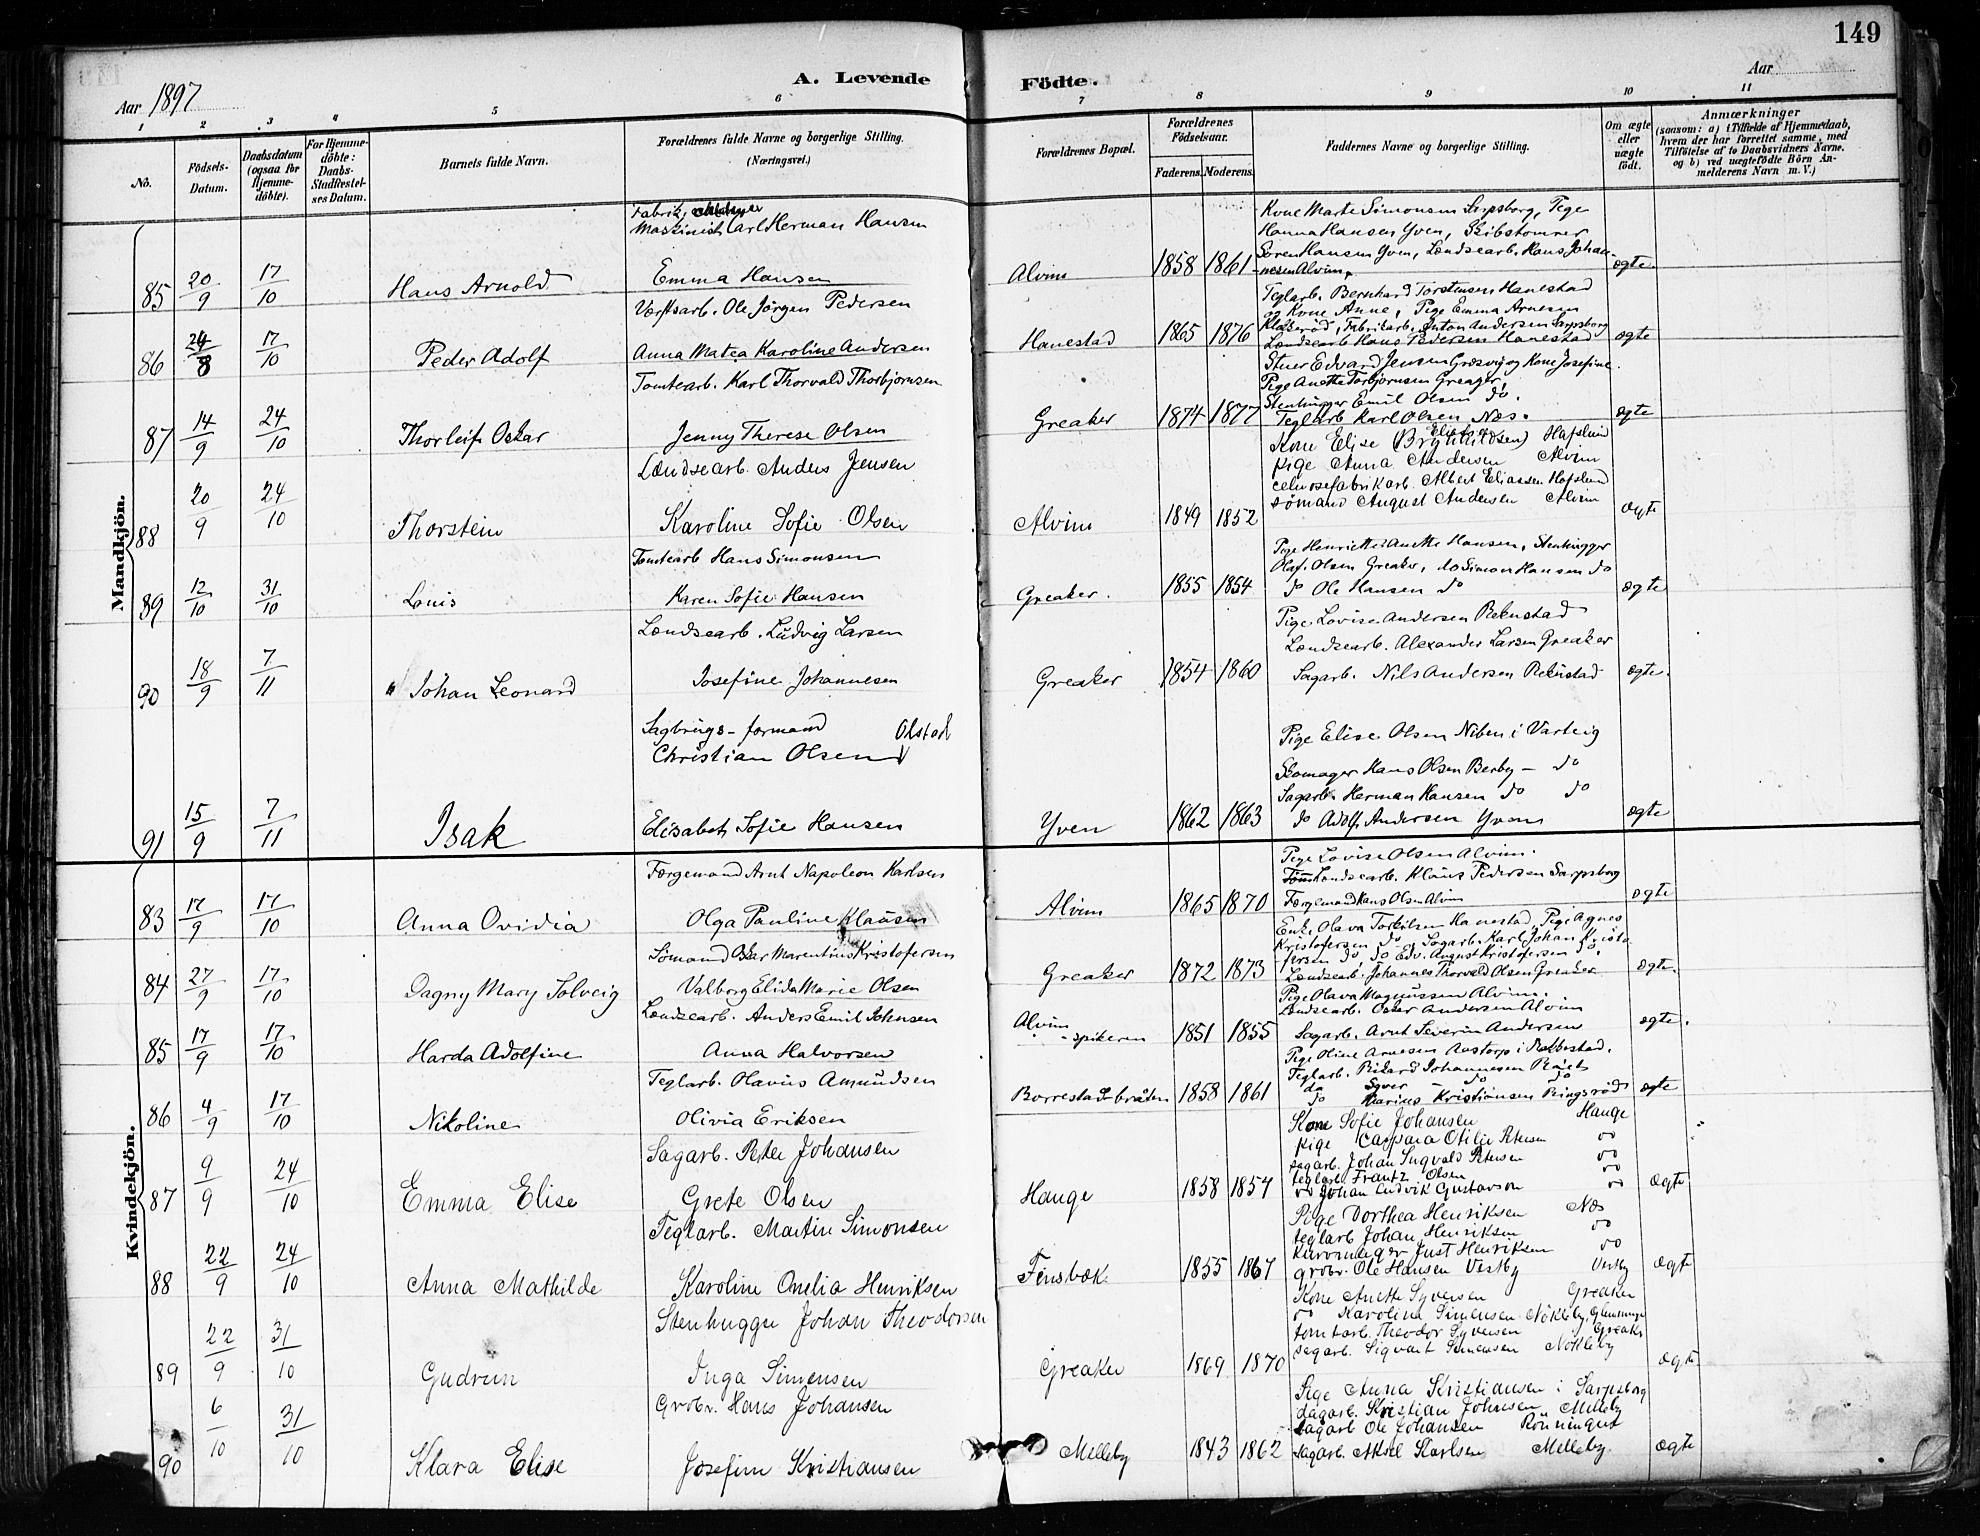 149
A. Levende Födte.
Aar 1897
Aar
1 2 3 4 5 6 7 8 9 10 11
No.
Födsels-Datum.
Daabsdatum (ogsaa for Hjemme-döbte).
For Hjemme-döbte: Daabs-Stadfestel-ses Datum.
Barnets fulde Navn.
Forældrenes fulde Navne og borgerlige Stilling. (Næringsvei.)
Forældrenes Bopæl.
Forældrenes Födselsaar.
Faderens. Moderens.
Faddernes Navne og borgerlige Stilling.
Om ægte eller uægte födt.
Anmærkninger
(saasom: a) i Tilfælde af Hjemmedaab, hvem der har forrettet samme, med Tilföielse af to Daabsvidners Navne, og b) ved uegtefödte Börn An-melderens Navn m. V.)
Mandkjön.
85 20/9 17/10 Hans Arnold
Maskinist Carl Herman Hansen
Emma Hansen
Alvim 1858 1861
Kone Marte Simonsen Sarpsborg, Pige
Hanna Hansen Yven, Skibstømrer
Søren Hansen Yven, Lændsearb. Hans Johan-
nesen Alvim.
ægte.
86 24/8 17/10 Peder Adolf
Værftsarb. Ole Jörgen Pedersen
Anna Matea Karoline Andersen
Hanestad 1865 1876
Teglarb. Bernhard Torstensen Hanestad
og Kone Anne, Pige Emma Arnesen
Fabrikarb. Anton Andersen Sarpsborg
Lændsearb Hans Pedersen Hanestad
ægte
87 14/9 24/10 Thorleif Oskar
Tomtearb. Karl Thorvald Thorbjørnsen
Jenny Therese Olsen
Greaker 1874 1877
Stuer Edvard Jensen Græsvig og Kone Josefine.
Pige Anette Torbjørnsen Greager,
Stenhugger Emil Olsen do.
Teglarb Karl Olsen Næs.
ægte
88 20/9 24/10 Thorstein
Lændsearb. Anders Jensen
Karoline Sofie Olsen
Alvim 1849 1852
Kone Elise (Brynhildsen) Hafslund
pige Anna Andersen Alvim
celulosefabrikarb. Albert Eliassen Hafslund
sømand August Andersen Alvim
ægte
89 12/10 31/10 Louis
Tomtearb Hans Simonsen
Karen Sofie Hansen
Greaker. 1855 1854
Pige Henriette Anette Hansen, Stenhugger
Olaf Olsen Greaker, do Simon Hansen do
do Ole Hansen do
ægte
90 18/9 7/11 Johan Leonard
Lændsearb. Ludvig Larsen
Josefine Johannesen
Greaker 1854 1860
Pige Lovise Andersen Rekustad
Lændsearb. Alexander Larsen Greaker
Sagarb. Nils Andersen Rekustad
ægte.
91 15/9 7/11 Isak
Sagbrugs-formand Olstad
Christian Olsen
Elisabeth Sofie Hansen
Yven 1862 1863
Pige Elise Olsen Niben i Varteig
Skomager Hans Olsen Berby - do
Sagarb. Herman Hansen do do
do Adolf Andersen Yven
ægte
Kvindekjön.
83 17/9 17/10 Anna Ovidia
Færgemand Arnt Napoleon Karlsen
Olga Pauline Klausen
Alvim 1865 1870
Pige Lovise Olsen Alvim.
Lændsearb. Klaus Pedersen Sarpsborg
Færgemand Hans Olsen Alvim
ægte
84 27/9 17/10 Dagny Mary Solveig
Sømand Oskar Marentius Kristofersen
Valborg Elida Marie Olsen
Greaker 1872 1873
Enke Olava Torkilsen Hanestad, Pige Agnes
Kristofersen do, Sagarb. Karl Johan Kristo-
fersen do, do Edv. August Kristofersen do,
Lændsearb. Johannes Thorvald Olsen Greaker
ægte.
85 17/9 17/10 Harda Adolfine
Lændsearb. Anders Emil Johnsen
Anna Halvorsen
Alvim
- spikeren 1851 1855
Pige Olava Magnussen Alvim.
Lændsearb. Oskar Andersen Alvim
Sagarb. Arnt Severin Andersen
ægte.
86 4/9 17/10 Nikoline
Teglarb. Olavus Amundsen
Olivia Eriksen
Borrestadbråten 1858 1861
Pige Oline Arnesen Aastorp i Rakkestad.
Teglarb. Rikard Johannesen Röiet
do Syver do do
do Marius Kristiansen Ringsrød
ægte
87 9/9 24/10 Emma Elise
Sagarb. Peter Johansen
Grete Olsen
Hauge 1858 1857
Kone Sofie Johansen Hauge
pige Caspara Otilie Petersen do
sagarb. Johan Ingvald Petersen do
teglarb. Frantz Olsen do
do Johan Ludvik Gustavson do
ægte
88 22/9 24/10 Anna Mathilde
Teglarb. Martin Simonsen
Karoline Onelia Henriksen
Finsbæk 1855 1867
Pige Dorthea Henriksen Næs
teglarb Johan Henriksen do
kurvmager Just Henriksen do
grbr. Ole Hansen Visthy Visthy
ægte
89 22/9 31/10 Gudrun
Stenhugger Johan Theodorsen
Inga Simensen
Greaker 1869 1870
Kone Anette Syversen Greaker
do Karolina Simensen Nökleby, Glemminge
tomtarb. Theodor Syversen Greaker
sagarb. Sigvart Simensen Nökleby
ægte
90 6/10 31/10 Klara Elise
Grbr. Hans Johansen
Josefine Kristiansen
Melleby 1843 1862
Pige Anna Kristiansen i Sarpsborg
sagarb. Kristian Johnsen Melleby
sagarb Ole Johansen Rönningen
sagarb. Aksel Karlsen Melleby.
ægte